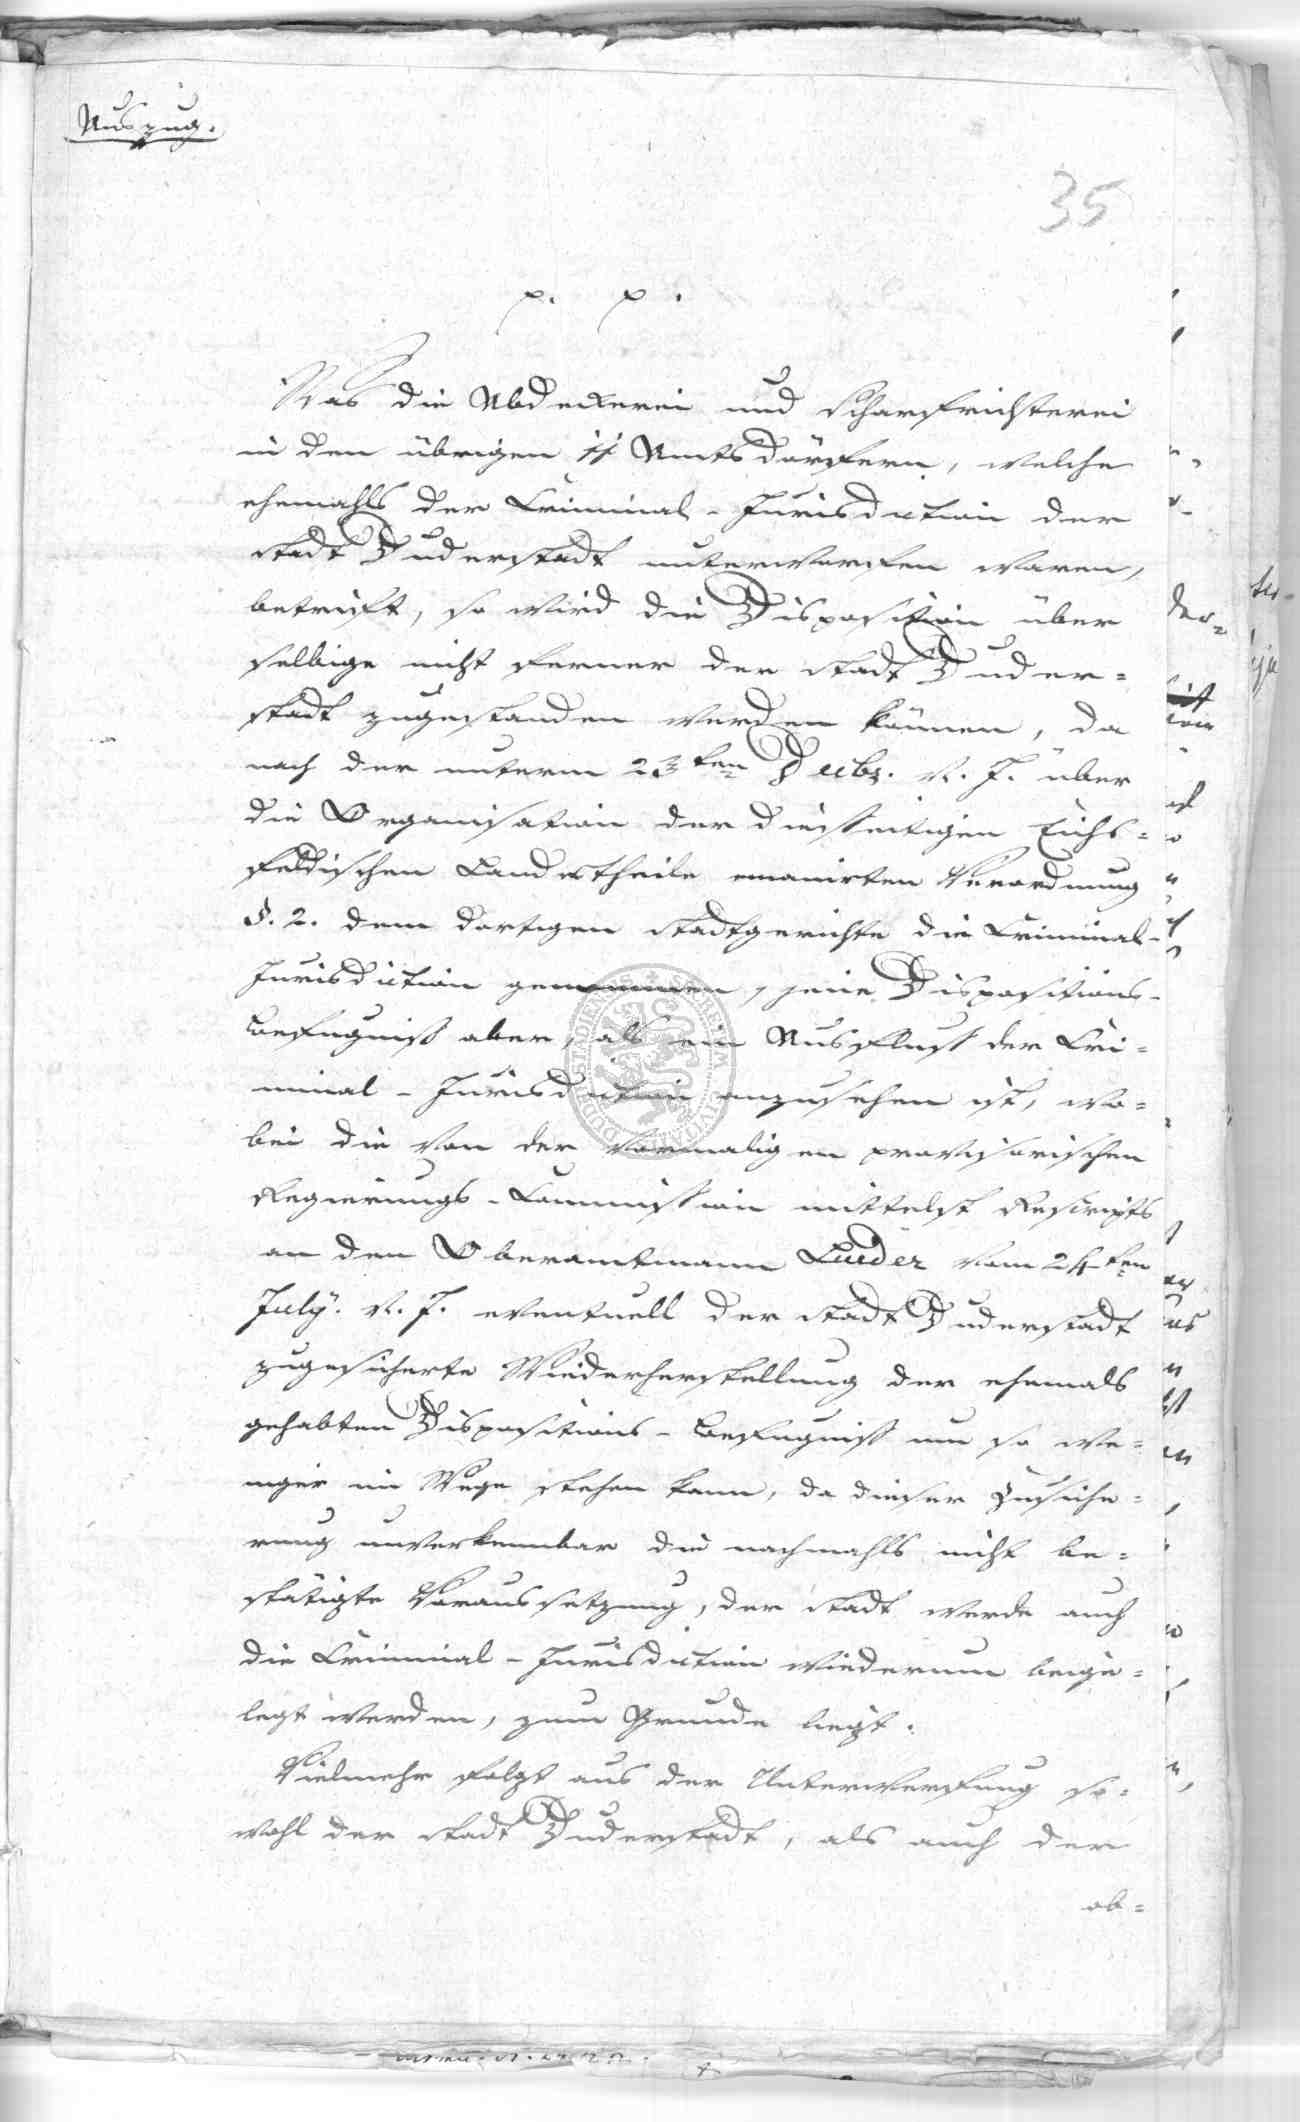 Auszug.
35
p. p.
Was die Abdeckerei und Scharfrichterei
in den übrigen 11 Amtsdörfern, welche
ehemahls der Criminal-Jurisdiction der
Stadt Duderstadt unterworfen waren,
betrifft, so wird die Disposition über
selbige nicht ferner der Stadt Duder=
stadt zugestanden werden können, da
nach der unterm 23ten Decbr. v. J. über
die Organisation der diesseitigen Eichs=
feldischen Landestheile emanirten Verordnung
§. 2. dem dortigen Stadtgerichte die Criminal-
Jurisdiction genommen, jene Dispositions-
Befugniß aber, als ein Ausfluß der Cri=
minal-Jurisdiction anzusehen ist, wo=
bei die von der vormaligen provisorischen
Regierungs-Commission mittelst Rescripts
an den Oberamtmann Lueder vom 24ten
July. v. J. eventuell der Stadt Duderstadt
zugesicherte Wiederherstellung der ehemals
gehabten Dispositions-Befugniß um so we=
niger im Wege stehen kann, da dieser Zusiche=
rung unverkennbar die nachmahls nicht be=
stätigte Voraussetzung, der Stadt werde auch
die Criminal-Jurisdiction wiederum beige=
legt werden, zum Grunde liegt.
Vielmehr folgt aus der Unterwerfung so=
wohl der Stadt Duderstadt, als auch der
ob=